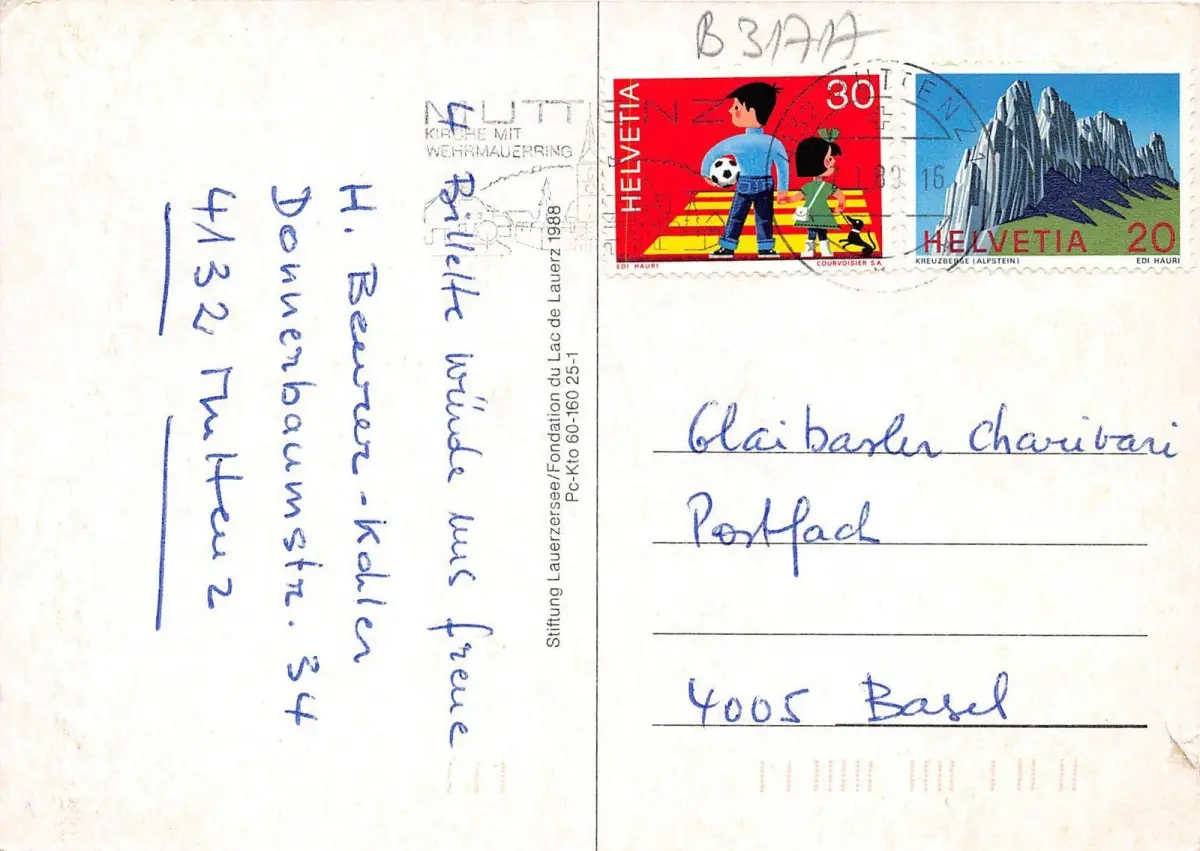 B 3171
MUTTENZ
KIRCHE MIT
WEHRMAUERRING
HELVETIA
30
EDI HAURI
COURVOISIER S.A.
MUTTENZ
89 16
HELVETIA 20
KREUZBERGE (ALPSTEIN)
EDI HAURI
4 Billette würde uns freue
H. Beurer-Kohler
Donnerbaumstr. 34
4132 Muttenz
Stiftung Lauerzersee/Fondation du Lac de Lauerz 1988
Pc-Kto 60-160 25-1
Glaibasler Charivari
Postfach
4005 Basel